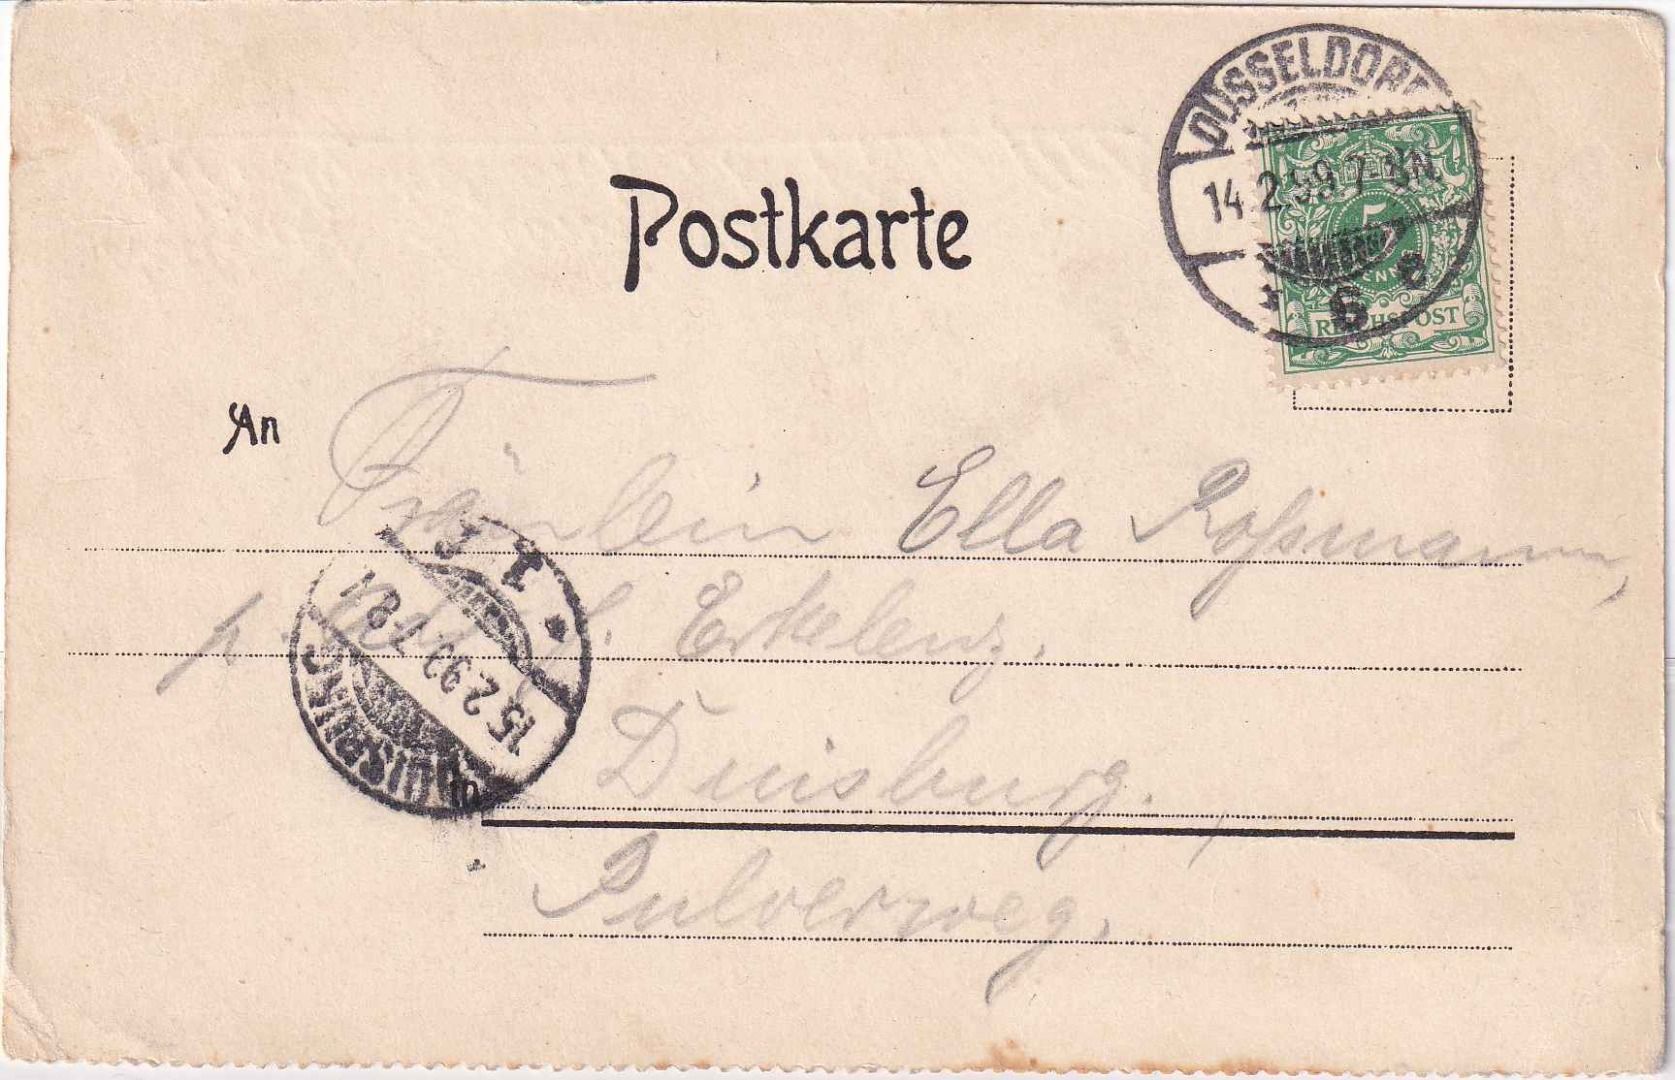 Postkarte
DÜSSELDORF
14.2.99 7-8N
* 6 e
5
REICHSPOST
An
Fräulein Ella Roßmann,
p. Erkelenz.
1 F
15.2.99 7-8V
DUISBURG
Duisburg.
Pulverweg.